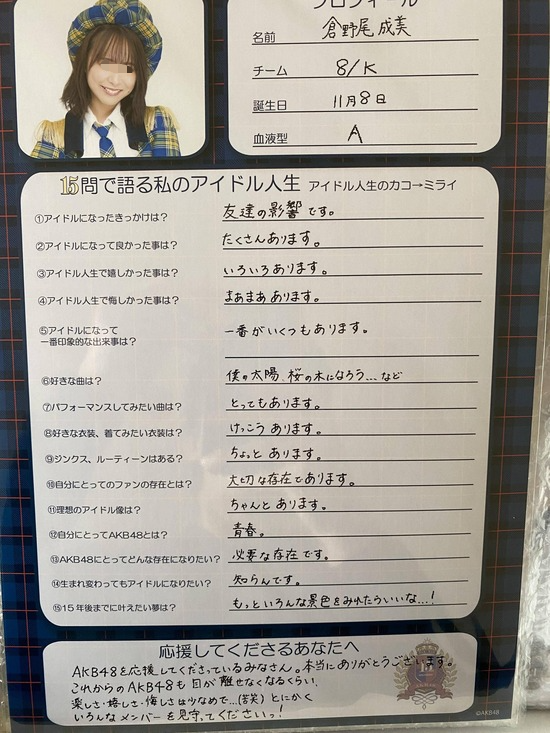 プロフィール
名前 倉野尾成美
チーム 8/K
誕生日 11月8日
血液型 A
15問で語る私のアイドル人生 アイドル人生のカコ→ミライ
①アイドルになったきっかけは? 友達の影響です。
②アイドルになって良かった事は? たくさんあります。
③アイドル人生で嬉しかった事は? いろいろあります。
④アイドル人生で悔しかった事は? まあまああります。
⑤アイドルになって
一番印象的な出来事は? 一番がいくつもあります。
⑥好きな曲は? 僕の太陽、桜の木になろう...など
⑦パフォーマンスしてみたい曲は? とってもあります。
⑧好きな衣装、着てみたい衣装は? けっこうあります。
⑨ジンクス、ルーティーンはある? ちょっとあります。
⑩自分にとってのファンの存在とは? 大切な存在であります。
⑪理想のアイドル像は? ちゃんとあります。
⑫自分にとってAKB48とは? 青春。
⑬AKB48にとってどんな存在になりたい? 必要な存在です。
⑭生まれ変わってもアイドルになりたい? 知らんです。
⑮15年後までに叶えたい夢は? もっといろんな景色をみれたらいいな...!
応援してくださるあなたへ
AKB48を応援してくださっているみなさん。本当にありがとうございます。
これからのAKB48も目が離せなくなるくらい、
楽しさ・嬉しさ・悔しさは少なめで...(苦笑)とにかく
いろんなメンバーを見守ってくださいっ!
©AKB48